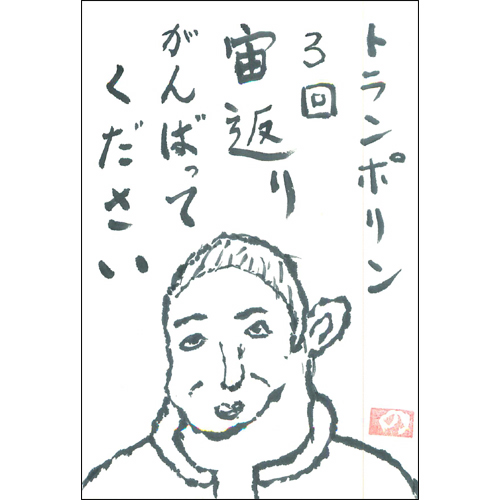 トランポリン
3回
宙返り
がんばって
ください
の